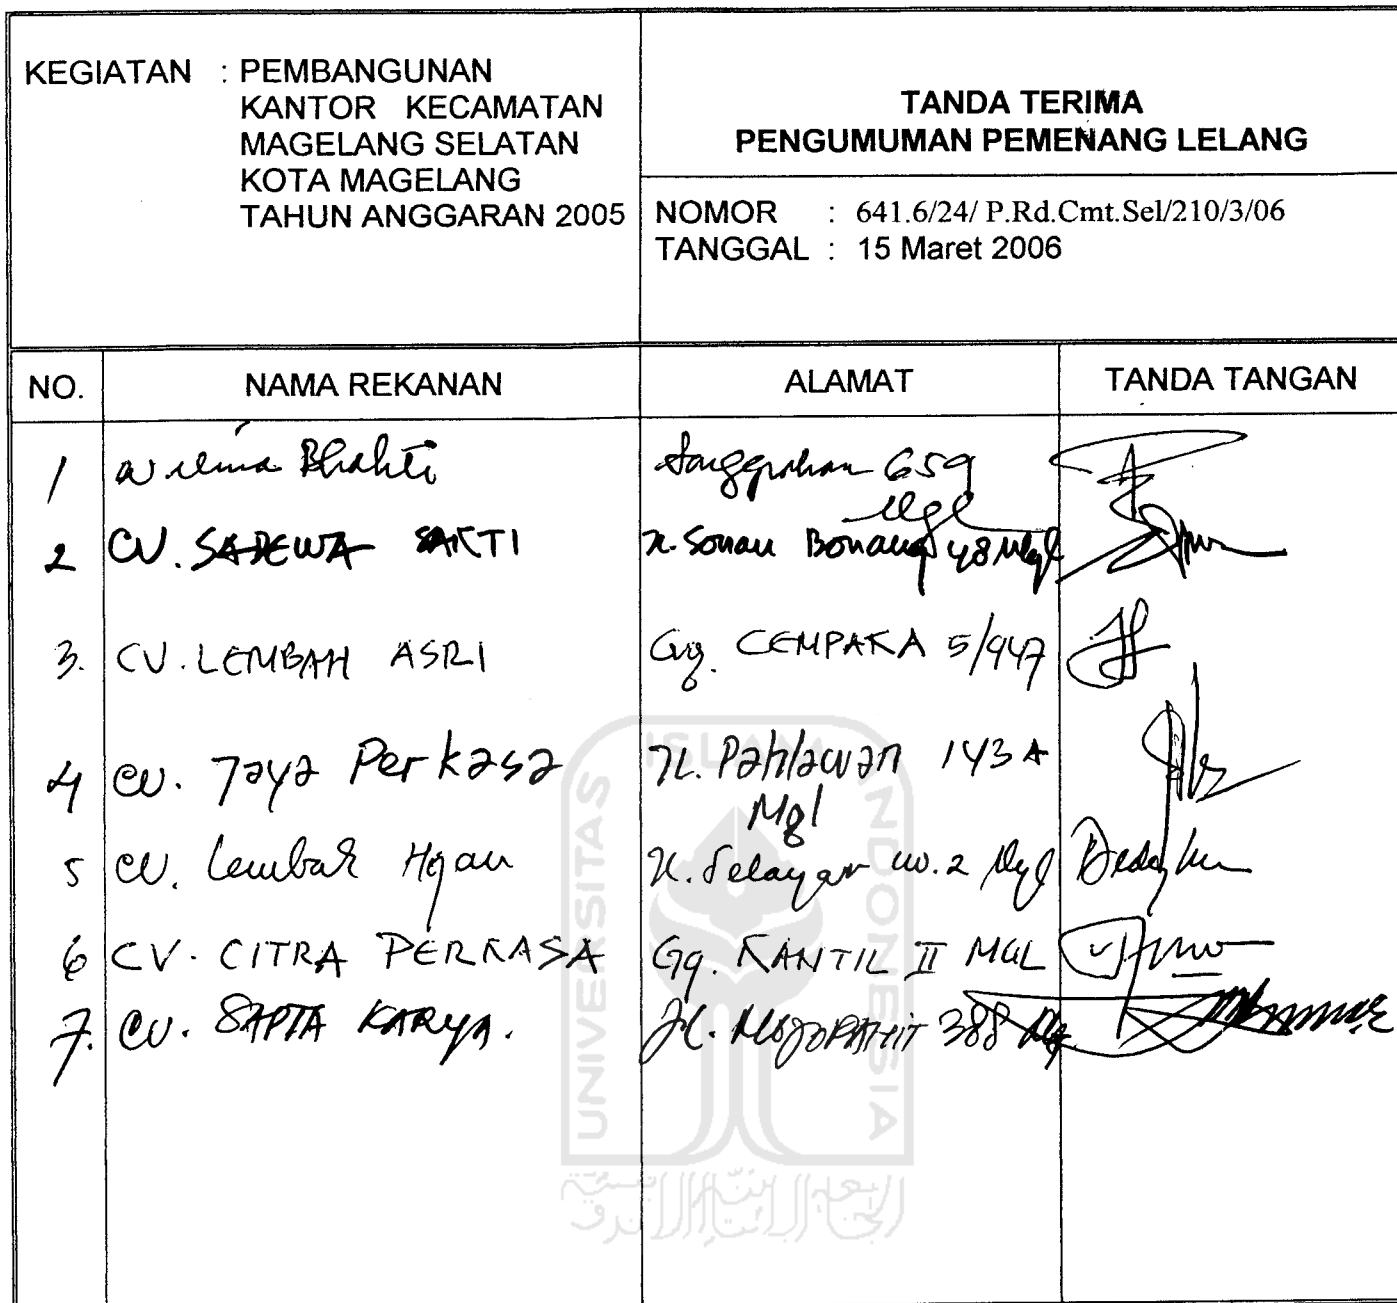 KEGIATAN : PEMBANGUNAN
KANTOR KECAMATAN
MAGELANG SELATAN
KOTA MAGELANG
TAHUN ANGGARAN 2005
TANDA TERIMA
PENGUMUMAN PEMENANG LELANG
NOMOR : 641.6/24/ P.Rd.Cmt.Sel/210/3/06
TANGGAL : 15 Maret 2006
NO. NAMA REKANAN ALAMAT TANDA TANGAN
1 Bhakti 659
Mgl
2 CV. SADEWA SAKTI Jl. Sonan Bonang 48 Mgl
3. CV. LEMBAH ASRI Gg. CEMPAKA 5/947
4 CV. Jaya Perkasa Jl. Pahlawan 143 A
Mgl
5 CV. Lembah Hijau Jl. Selayar no. 2 Mgl
6 CV. CITRA PERKASA Gg. KANTIL II MGL
7. CV. SAPTA KARYA. Jl. MOJOPAHIT 388
UNIVERSITAS
ISLAM
INDONESIA